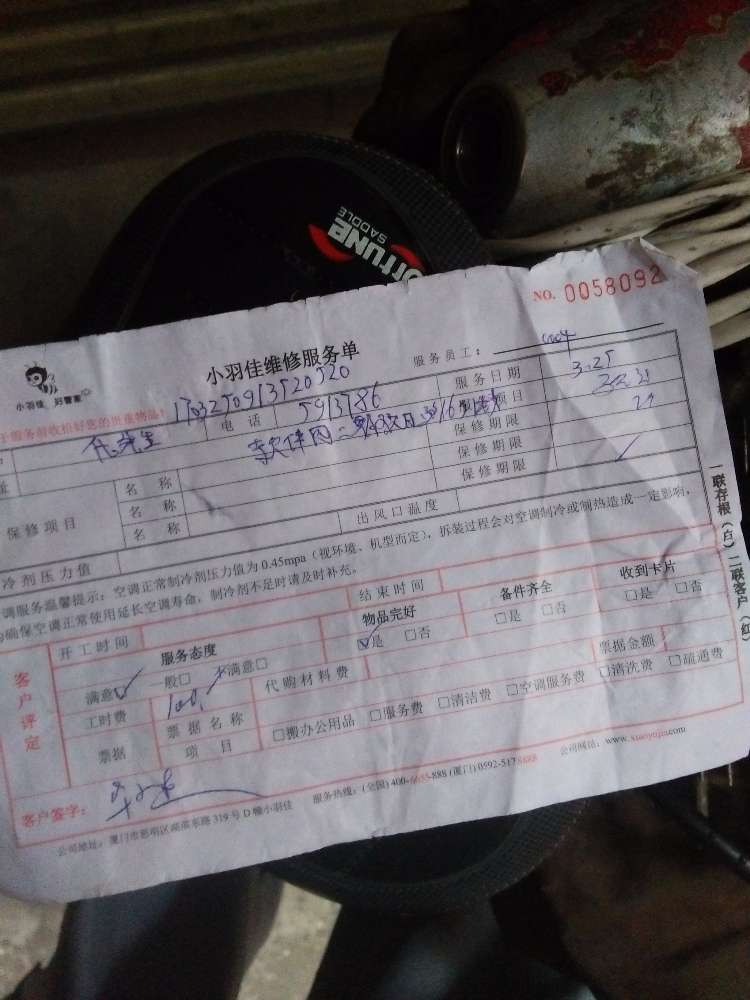 fortune
SADDLE
NO. 0058092
小羽佳维修服务单
服务员工：
小羽佳 好管家
1703250913520520
电话 5913786 服务日期 3.25
保修期限
保修期限
保修期限
保修项目
名称
名称
名称
出风口温度
冷剂压力值
调服务温馨提示：空调正常制冷剂压力值为0.45mpa（视环境、机型而定），拆装过程会对空调制冷或制热造成一定影响，
确保空调正常使用延长空调寿命，制冷剂不足时请及时补充。
开工时间 结束时间
客户评定
服务态度 物品完好 备件齐全 收到卡片
满意☑ 一般□ 不满意□ ☑是 □否 □是 □否 □是 □否
工时费 100 代购材料费 票据金额
票据 票据名称
项目 □搬办公用品 □服务费 □清洁费 □空调服务费 □清洗费 □疏通费
客户签字：
公司地址：厦门市思明区 319号D幢小羽佳 服务热线：(全国)400-6655-888 (厦门)0592-5178888 公司网站：www.xiaoyujia.com
一联存根（白）二联客户（红）